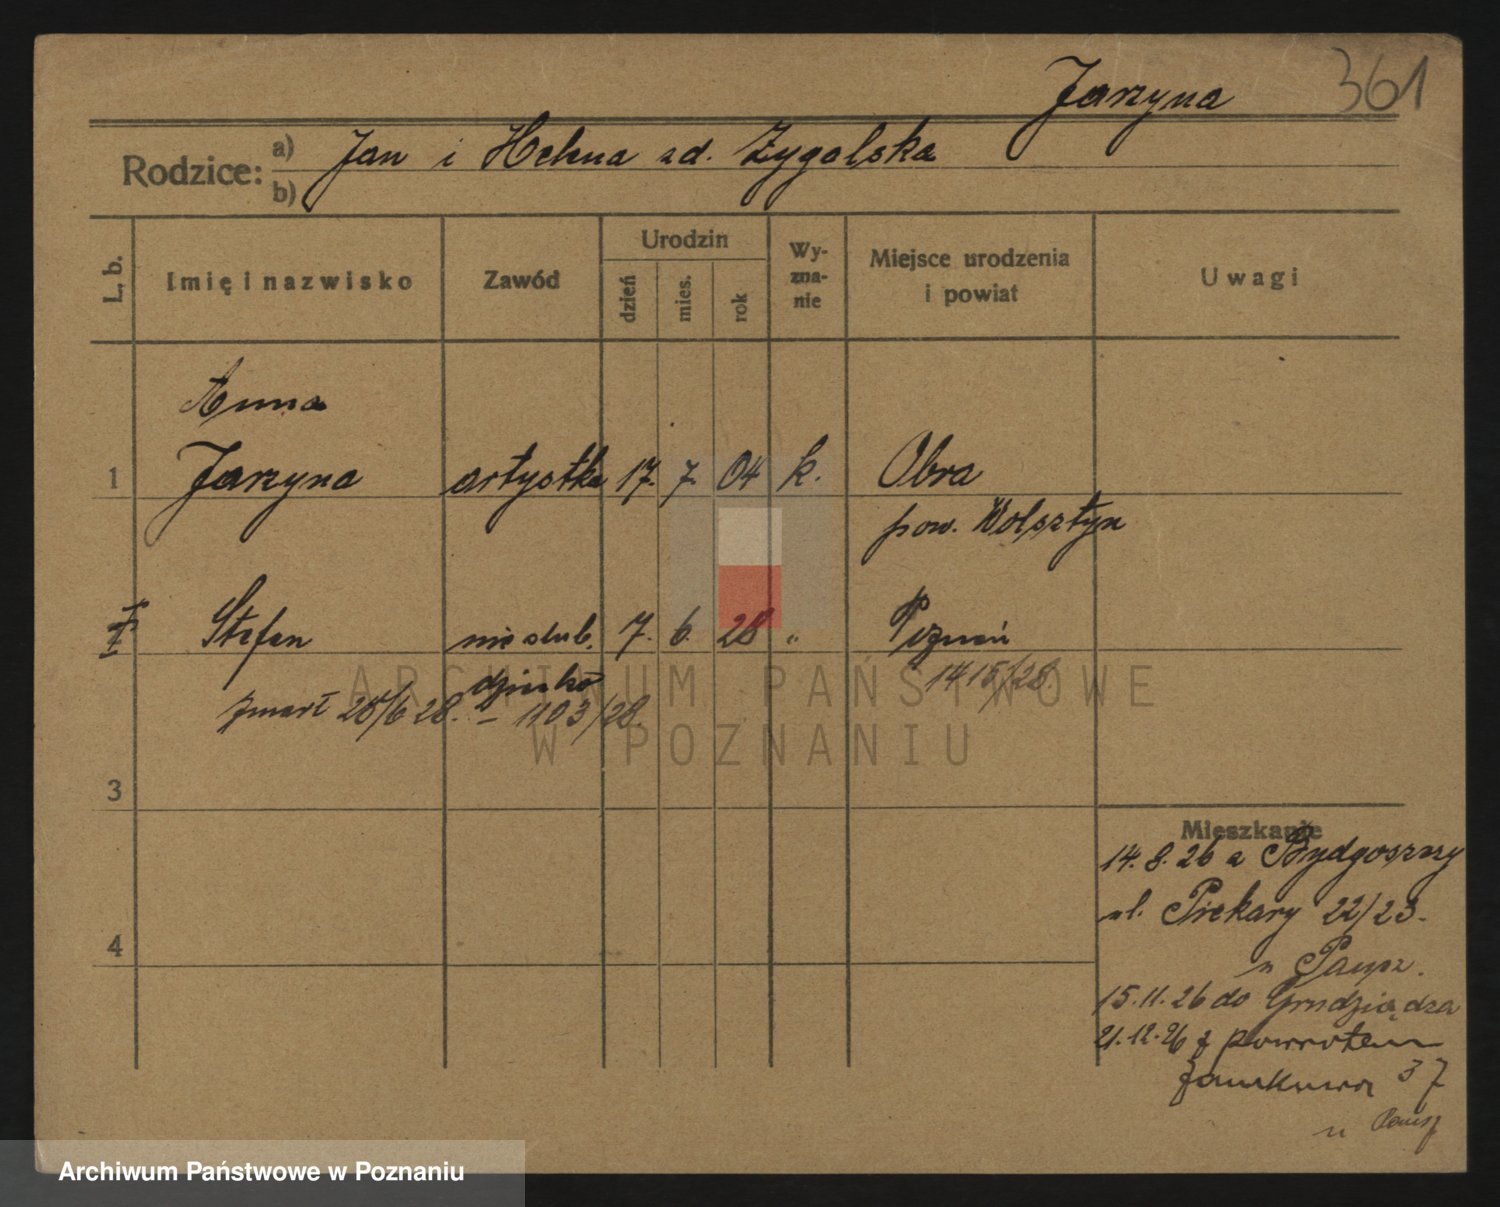 Jarzyna 361
Rodzice: a) Jan i Helena zd. Zygalska
b)
L. b. Imię i nazwisko Zawód Urodzin dzień mies. rok Wy-zna-nie Miejsce urodzenia i powiat Uwagi
Anna
1 Jarzyna artystka 17. 7. 04 k. Obra
pow. Wolsztyn
Stefan nieślub. 7. 6. 28 " Poznań
dziecko 1415/28.
zmarł 28/6 28. – 1103/28.
ARCHIWUM PAŃSTWOWE
W POZNANIU
3
Mieszkanie
14.8.26 z Bydgoszczy
ul. Piekary 22/23.
4
u Paysz.
15.11.26 do Grudziądza
21.12.26 z powrotem
Zamkowa 37
u
Archiwum Państwowe w Poznaniu